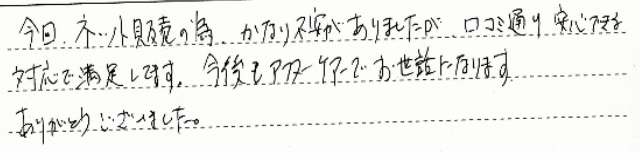 今回、ネット販売の為、かなり不安がありましたが、口コミ通り安心できる
対応で満足してます。今後もアフターケアーでお世話になります
ありがとうございました。